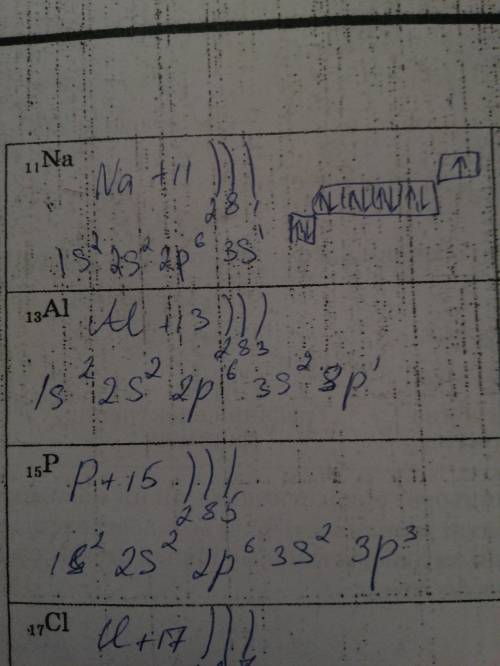 ₁₁Na Na +11 )))
2 8 1
1s² 2s² 2p⁶ 3s¹
₁₃Al Al +13 )))
2 8 3
1s² 2s² 2p⁶ 3s² 3p¹
₁₅P P +15 )))
2 8 5
1s² 2s² 2p⁶ 3s² 3p³
₁₇Cl Cl +17 )))